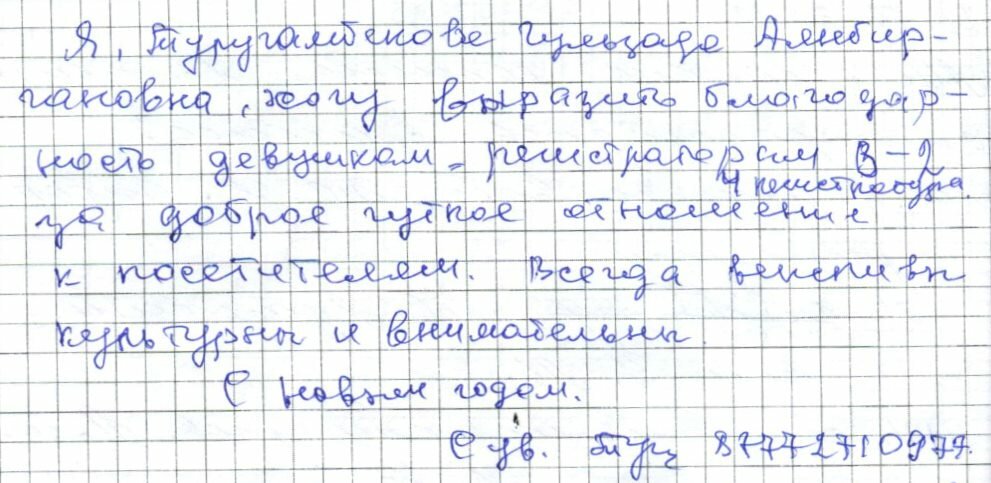 Я, Туругамбекова Гульзада Алибир-
гановна, хочу выразить благодар-
ность девушкам - регистраторам В-2
4 регистратура.
за доброе чуткое отношение
к посетителям. Всегда вежливы
культурны и внимательны.
С новым годом.
С ув. Туг 87772710977.